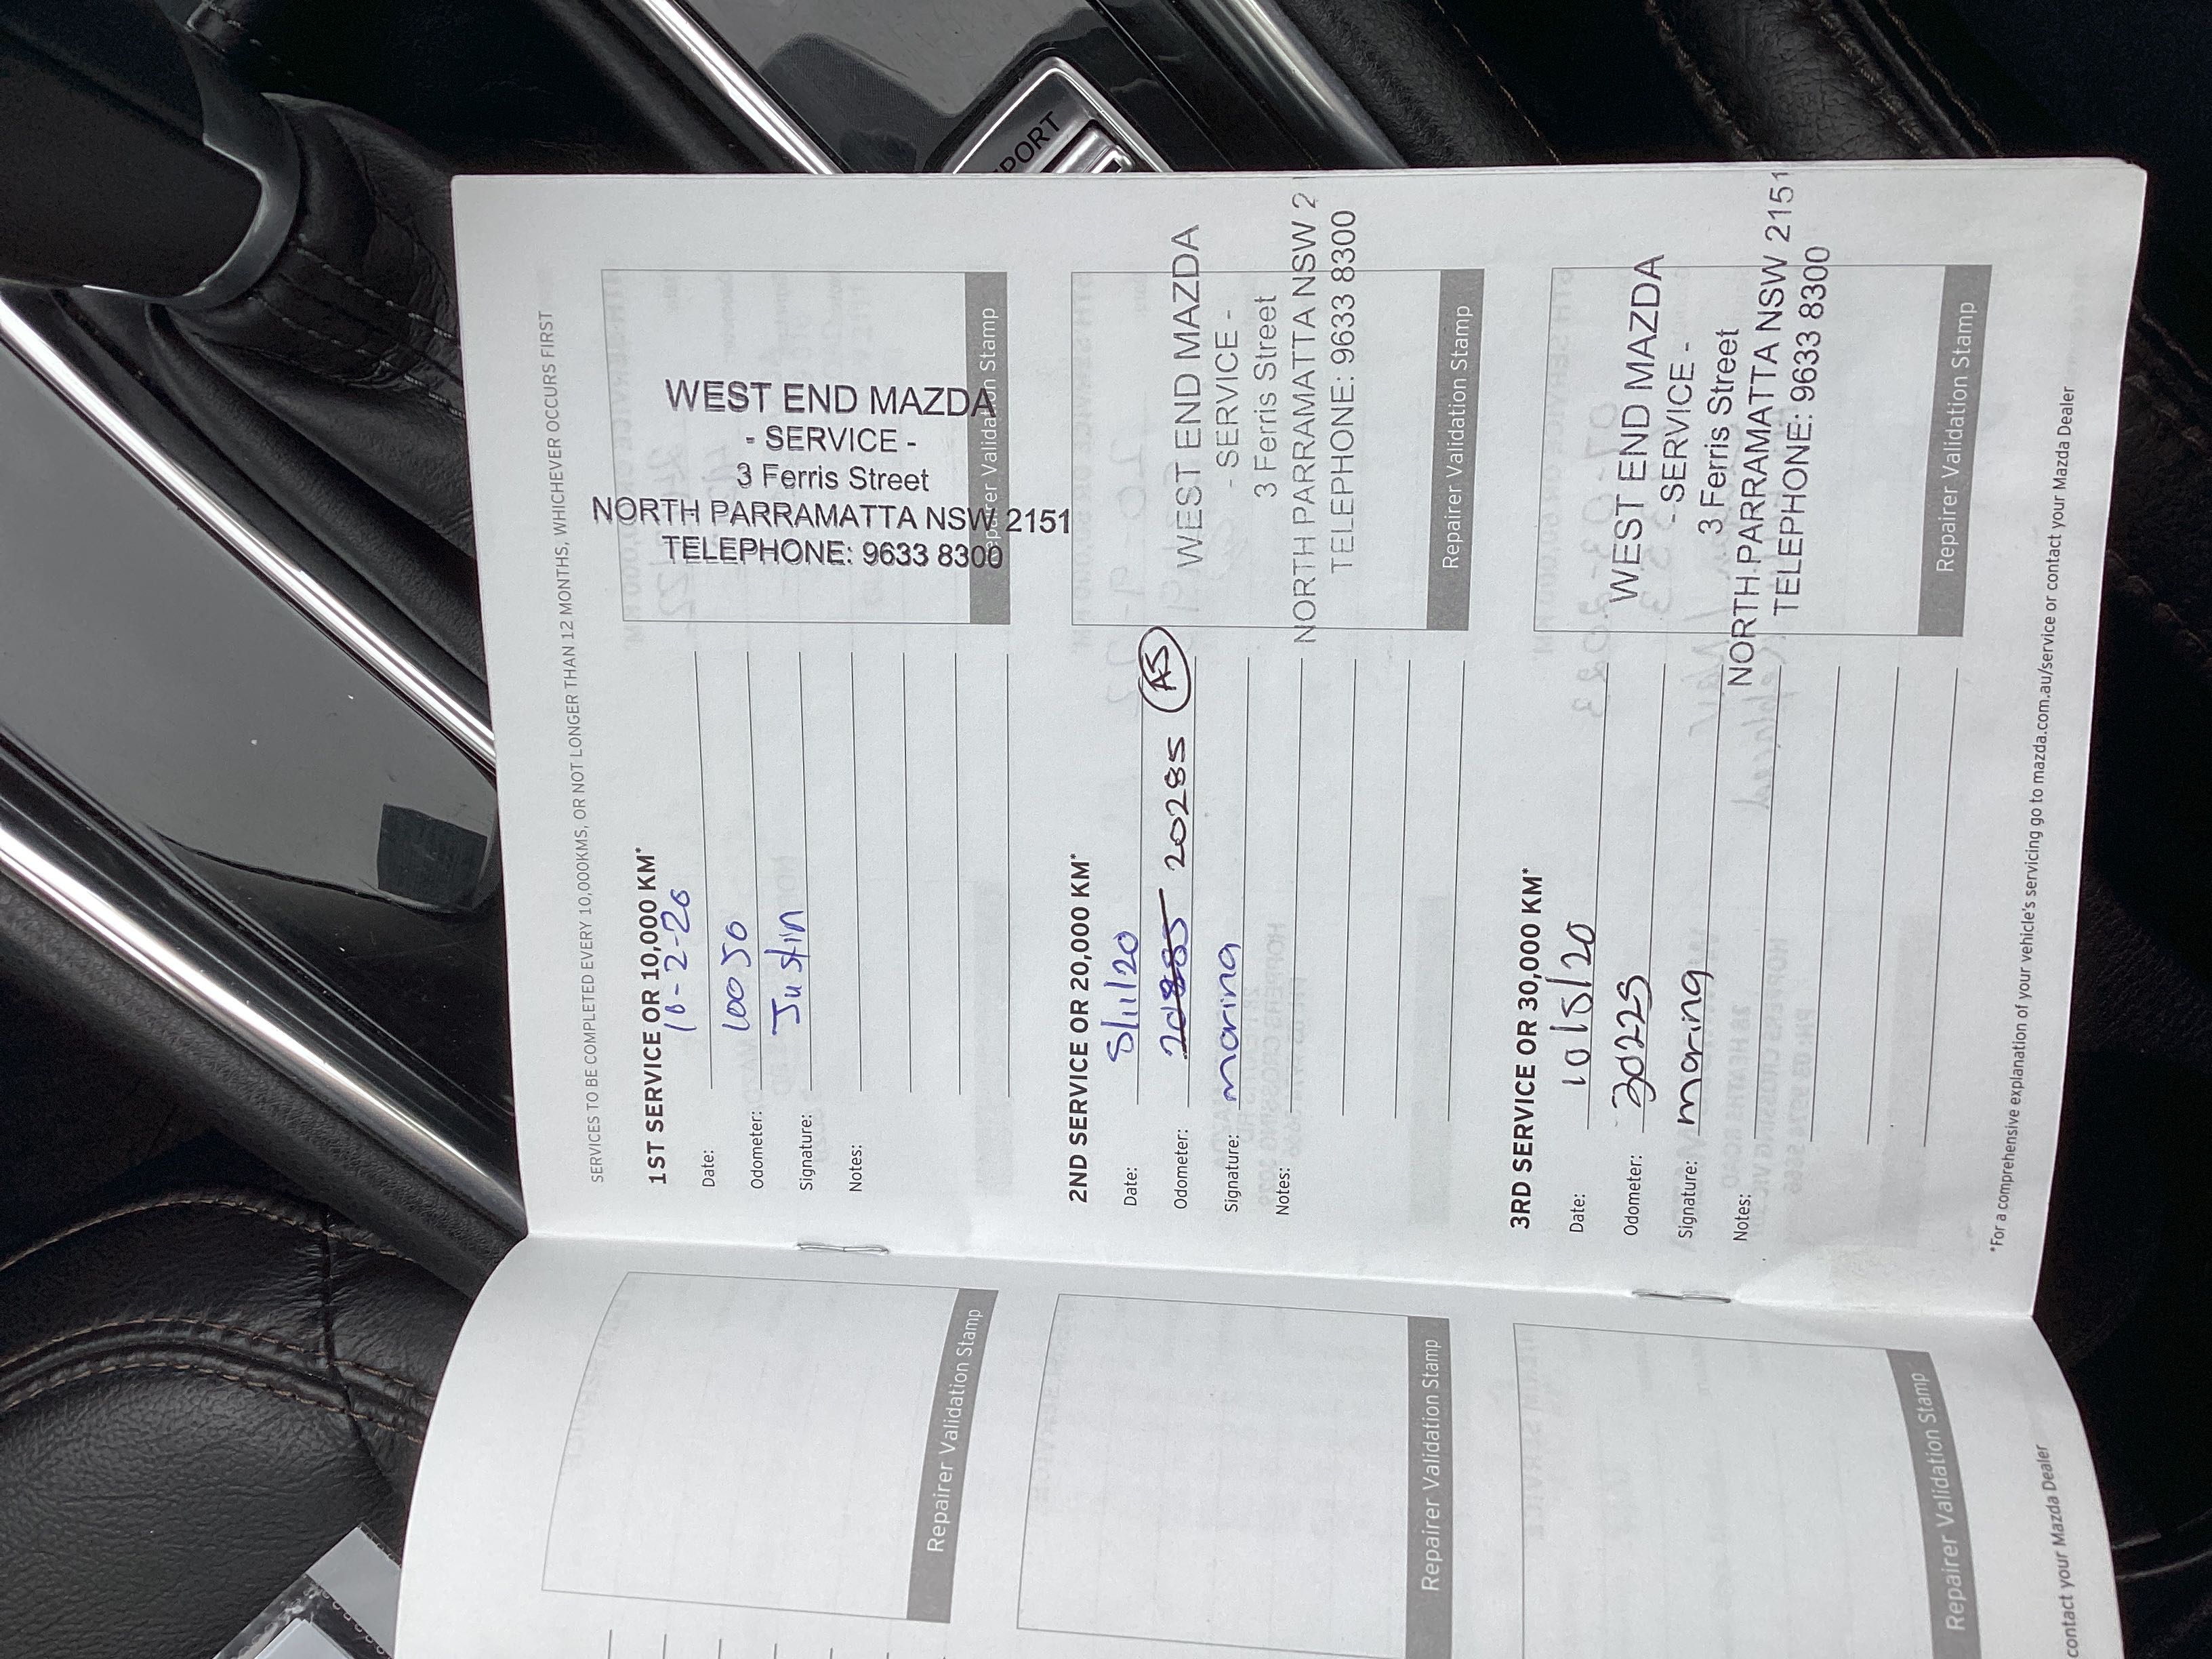 SERVICES TO BE COMPLETED EVERY 10,000KMS, OR NOT LONGER THAN 12 MONTHS, WHICHEVER OCCURS FIRST
1ST SERVICE OR 10,000 KM*
Date: 18-2-20
Odometer: 10050
Signature: Justin
Notes:
WEST END MAZDA
- SERVICE -
3 Ferris Street
NORTH PARRAMATTA NSW 2151
TELEPHONE: 9633 8300
Repairer Validation Stamp
2ND SERVICE OR 20,000 KM*
Date: 5/11/20
Odometer: 20285 AS
Signature: marina
Notes:
WEST END MAZDA
- SERVICE -
3 Ferris Street
NORTH PARRAMATTA NSW 2
TELEPHONE: 9633 8300
Repairer Validation Stamp
3RD SERVICE OR 30,000 KM*
Date: 10/5/20
Odometer: 30225
Signature: marina
Notes:
WEST END MAZDA
- SERVICE -
3 Ferris Street
NORTH PARRAMATTA NSW 2151
TELEPHONE: 9633 8300
Repairer Validation Stamp
*For a comprehensive explanation of your vehicle's servicing go to mazda.com.au/service or contact your Mazda Dealer
Repairer Validation Stamp
Repairer Validation Stamp
Repairer Validation Stamp
contact your Mazda Dealer
PORT